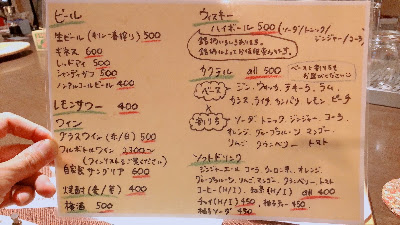 ビール
生ビール(キリン一番搾り) 500
ギネス 600
レッドアイ 500
シャンディガフ 500
ノンアルコールビール 400
レモンサワー 400
ワイン
グラスワイン(赤/白) 500
フルボトルワイン 2300〜
(ワインリストをご覧ください)
自家製サングリア 600
焼酎(麦/芋) 400
梅酒 500
ウィスキー
ハイボール 500 (ソーダ/トニック/
ジンジャー/コーラ)
銘柄いろいろあります。
銘柄によってお値段変わります。
カクテル all 500
ベースと割りものを
お選びください
ベース
ジン、ウォッカ、テキーラ、ラム、
カシス、ライチ、カンパリ、レモン、ピーチ
×
割りもの
ソーダ、トニック、ジンジャー、コーラ、
オレンジ、グレープフルーツ、マンゴー、
りんご、クランベリー、トマト
ソフトドリンク
ジンジャーエール、コーラ、ウーロン茶、オレンジ、
グレープフルーツ、りんご、マンゴー、クランベリー、トマト
コーヒー(H/I)、紅茶(H/I) all 400
チャイ(H/I) 450、柚子ティー 450、
柚子ソーダ 450